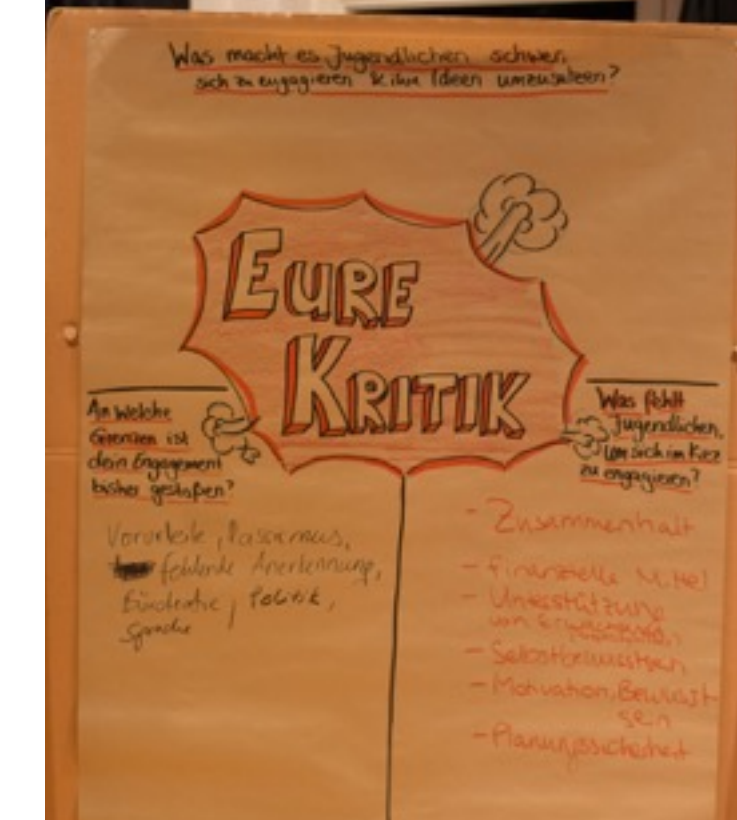 Was macht es Jugendlichen schwer,
sich zu engagieren & ihre Ideen umzusetzen?
EURE
KRITIK
An welche
Grenzen ist
dein Engagement
bisher gestoßen?
Vorurteile, Rassismus,
fehlende Anerkennung,
Bürokratie, Politik,
Sprache
Was fehlt
Jugendlichen,
um sich im Kiez
zu engagieren?
- Zusammenhalt
- finanzielle Mittel
- Unterstützung
von Erwachsenen
- Selbstbewusstsein
- Motivation, Bewusst
sein
- Planungssicherheit